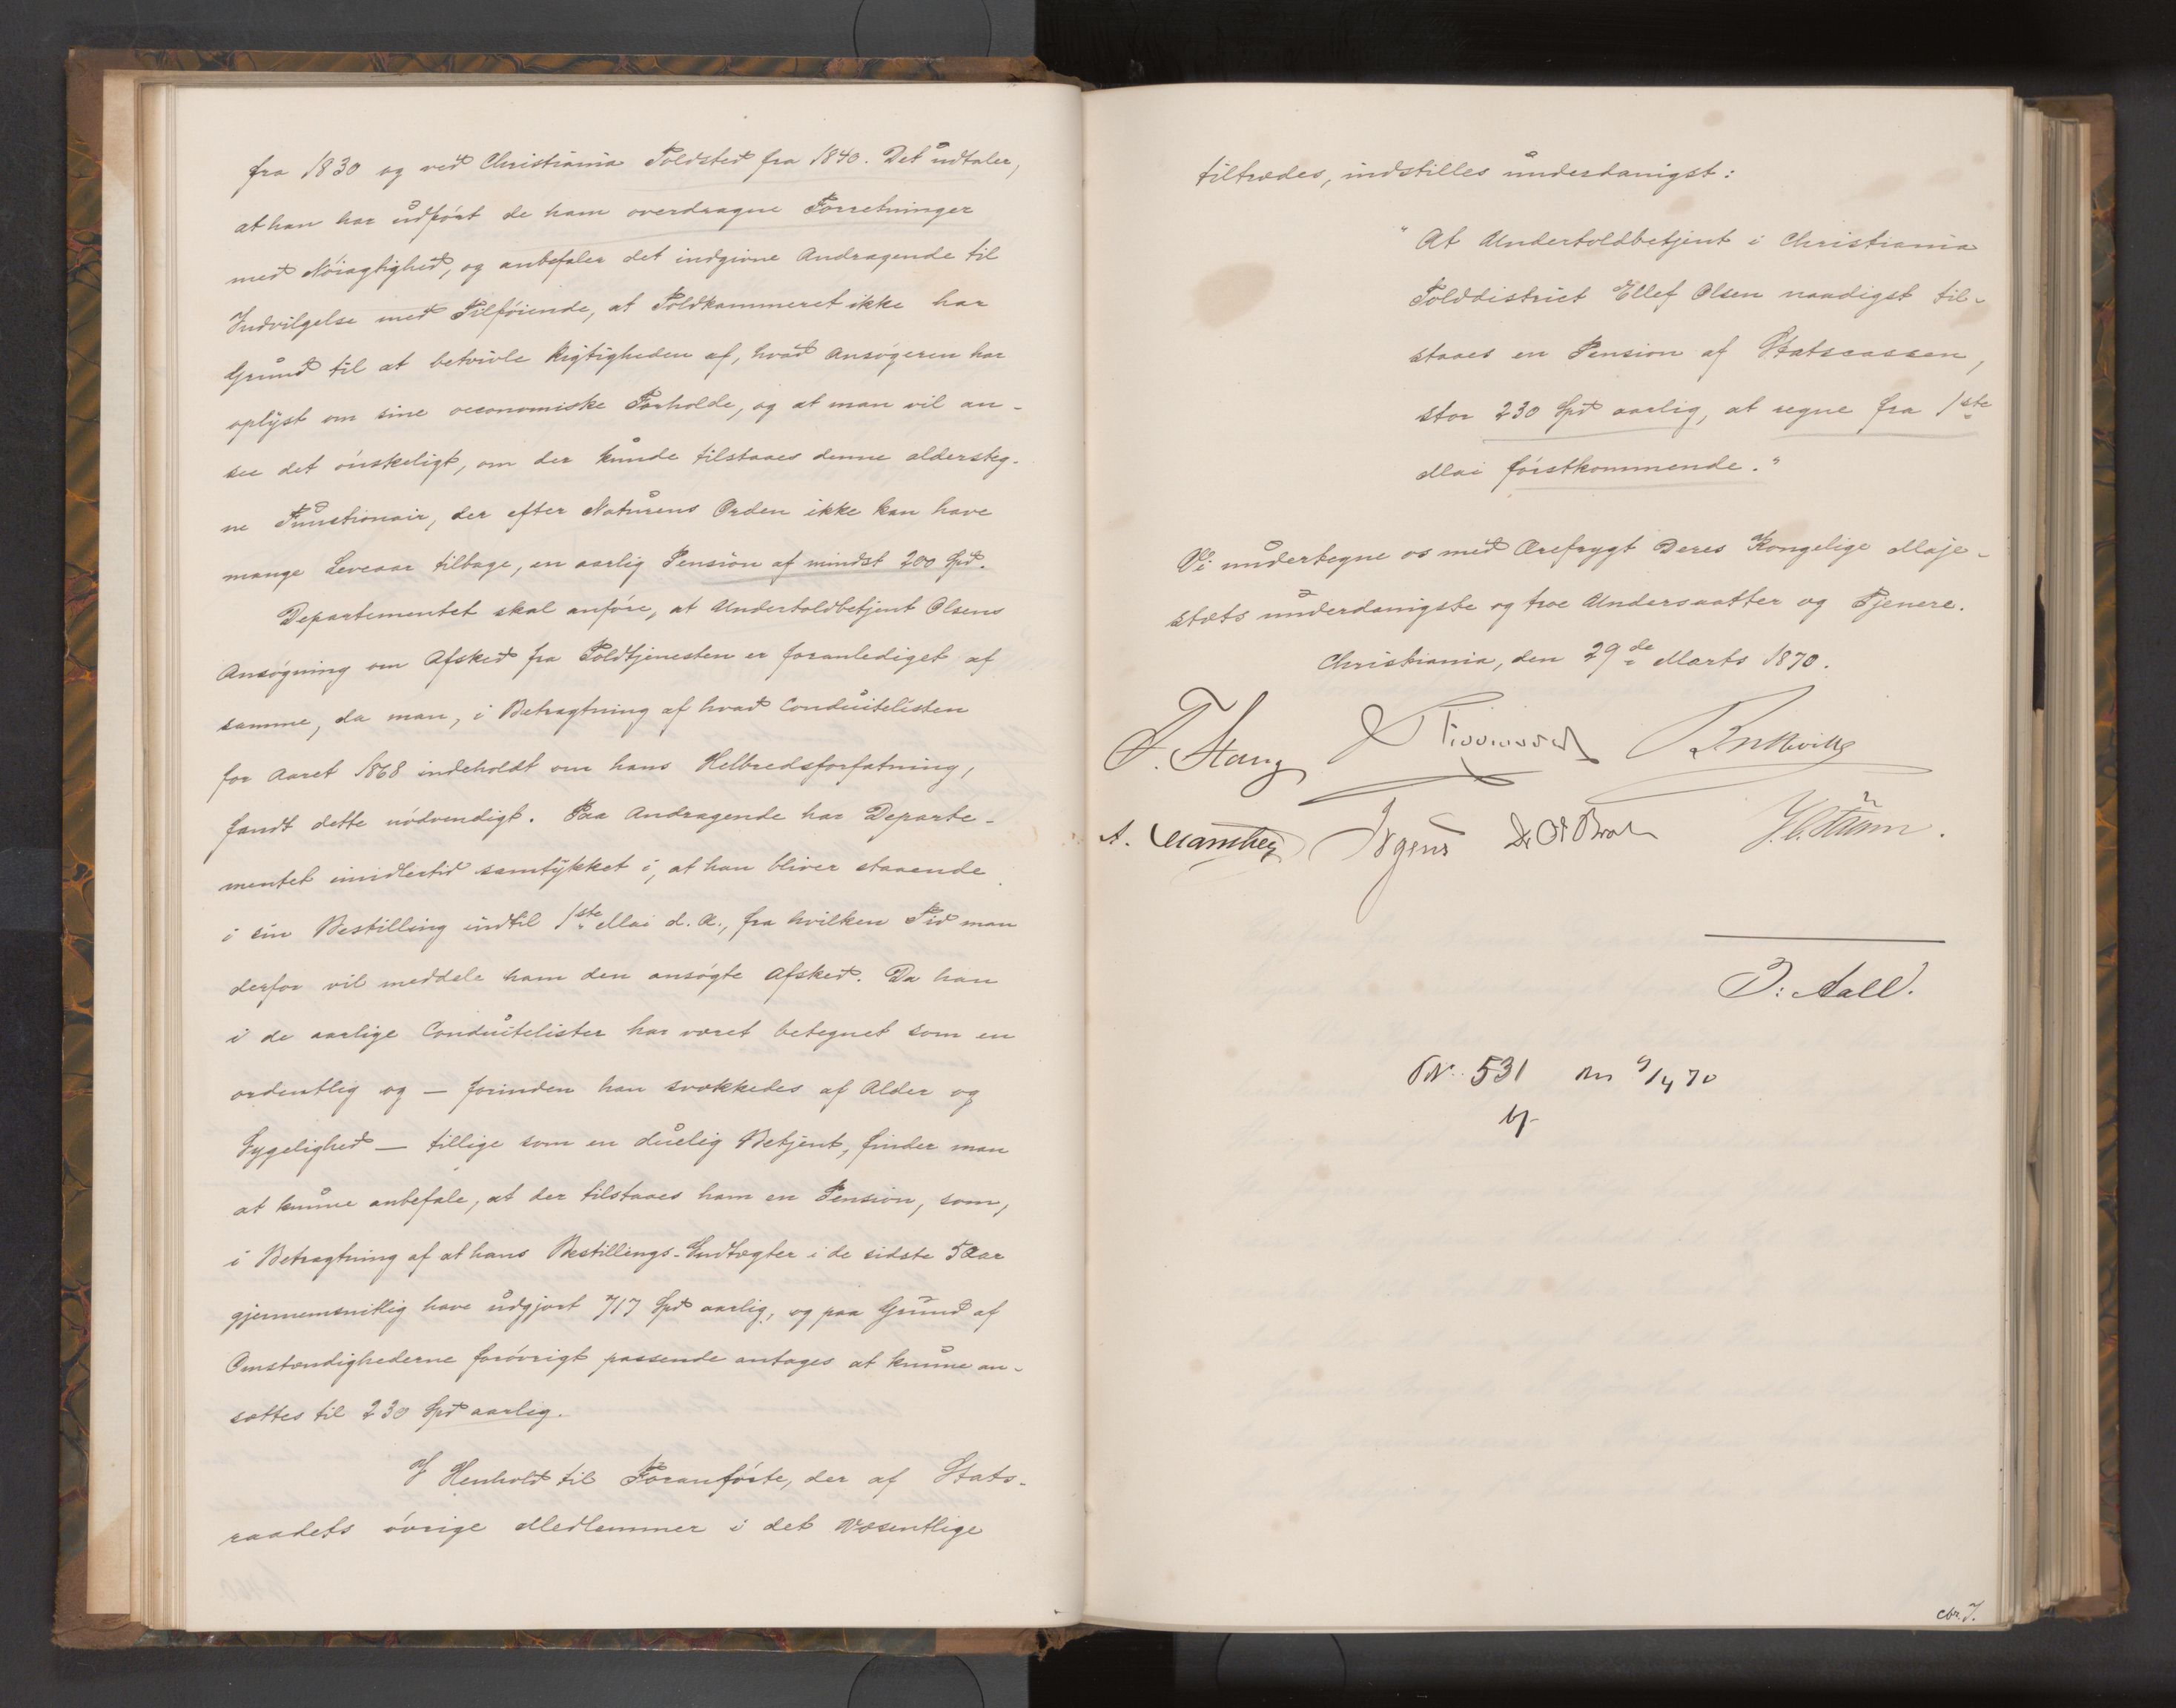 fra 1830 og ved Christiania Toldsted fra 1840. Det udtaler,
at han har udført de ham overdragne Forretninger
med Nøiagtighed, og anbefaler det indgivne Andragende til
Indvilgelse med Tilføiende, at Toldkammeret ikke har
Grund til at betvivle Rigtigheden af, hvad Ansøgeren har
oplyst om sine oeconomiske Forholde, og at man vil an-
see det ønskeligt, om der kunde tilstaaes denne aldersteg-
ne Functionair, der efter Naturens Orden ikke kan have
mange Leveaar tilbage, en aarlig Pension af mindst 200 Spd.
Departementet skal anføre, at Undertoldbetjent Olsens
Ansøgning om Afsked fra Toldtjenesten er foranlediget af
samme, da man, i Betragtning af hvad Conduitelisten
for Aaret 1868 indeholdt om hans Helbredsforfatning,
fandt dette nødvendigt. Paa Andragende har Departe-
mentet imidlertid samtykket i, at han bliver staaende
i sin Bestilling indtil 1ste Mai d. A., fra hvilken Tid man
derfor vil meddele ham den ansøgte Afsked. Da han
i de aarlige Conduitelister har været betegnet som en
ordentlig og — forinden han svækkedes af Alder og
Sygelighed — tillige som en duelig Betjent, finder man
at kunne anbefale, at der tilstaaes ham en Pension, som,
i Betragtning af at hans Bestillings-Indtægter i de sidste 5 Aar
gjennemsnitlig have udgjort 717 Spd aarlig, og paa Grund af
Omstændighederne forøvrigt passende antages at kunne an-
sættes til 230 Spd aarlig.
I Henhold til Foranførte, der af Stats-
raadets øvrige Medlemmer i det Væsentlige
tiltrædes, indstilles underdanigst:
"At Undertoldbetjent i Christiania
Tolddistrict Ellef Olsen naadigst til-
staaes en Pension af Statscassen,
stor 230 Spd aarlig, at regne fra 1ste
Mai førstkommende."
Vi undertegne os med Ærefrygt Deres Kongelige Maje-
stæts underdanigste og troe Undersaatter og Tjenere.
Christiania, den 29de Marts 1870.
F. Stang
A. Manthey Irgens Dr O J Broch
J. Aall.
No. 531 9/4 70